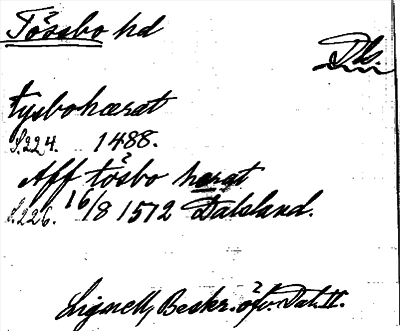 Tössbo hd
Dls.
tysbohærat
S.224. 1488.
Aff tösbo harat
S.226. 16/8 1512 Dalsland.
Lignell, Beskr. öfv. Dal. II.